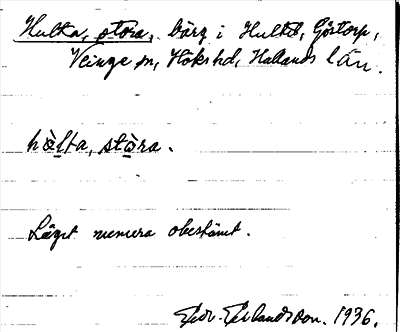 Hulta, stora, bärg i Hultd, Göstorp,
Veinge sn, Höks hd, Hallands län.
hùlta, stòra.
Läget numera obestämt.
Edv. Erlandsson. 1936.